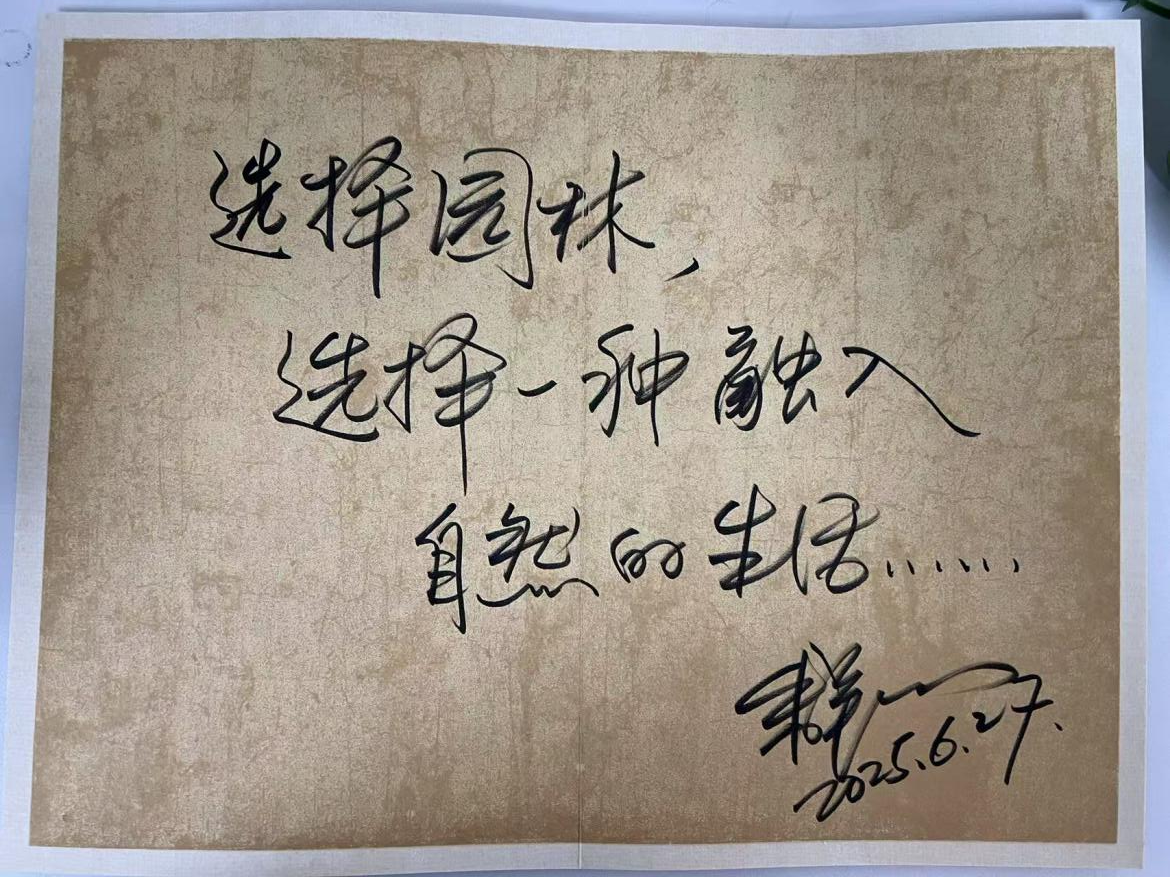 选择园林，
选择一种融入
自然的生活……
2025.6.27.